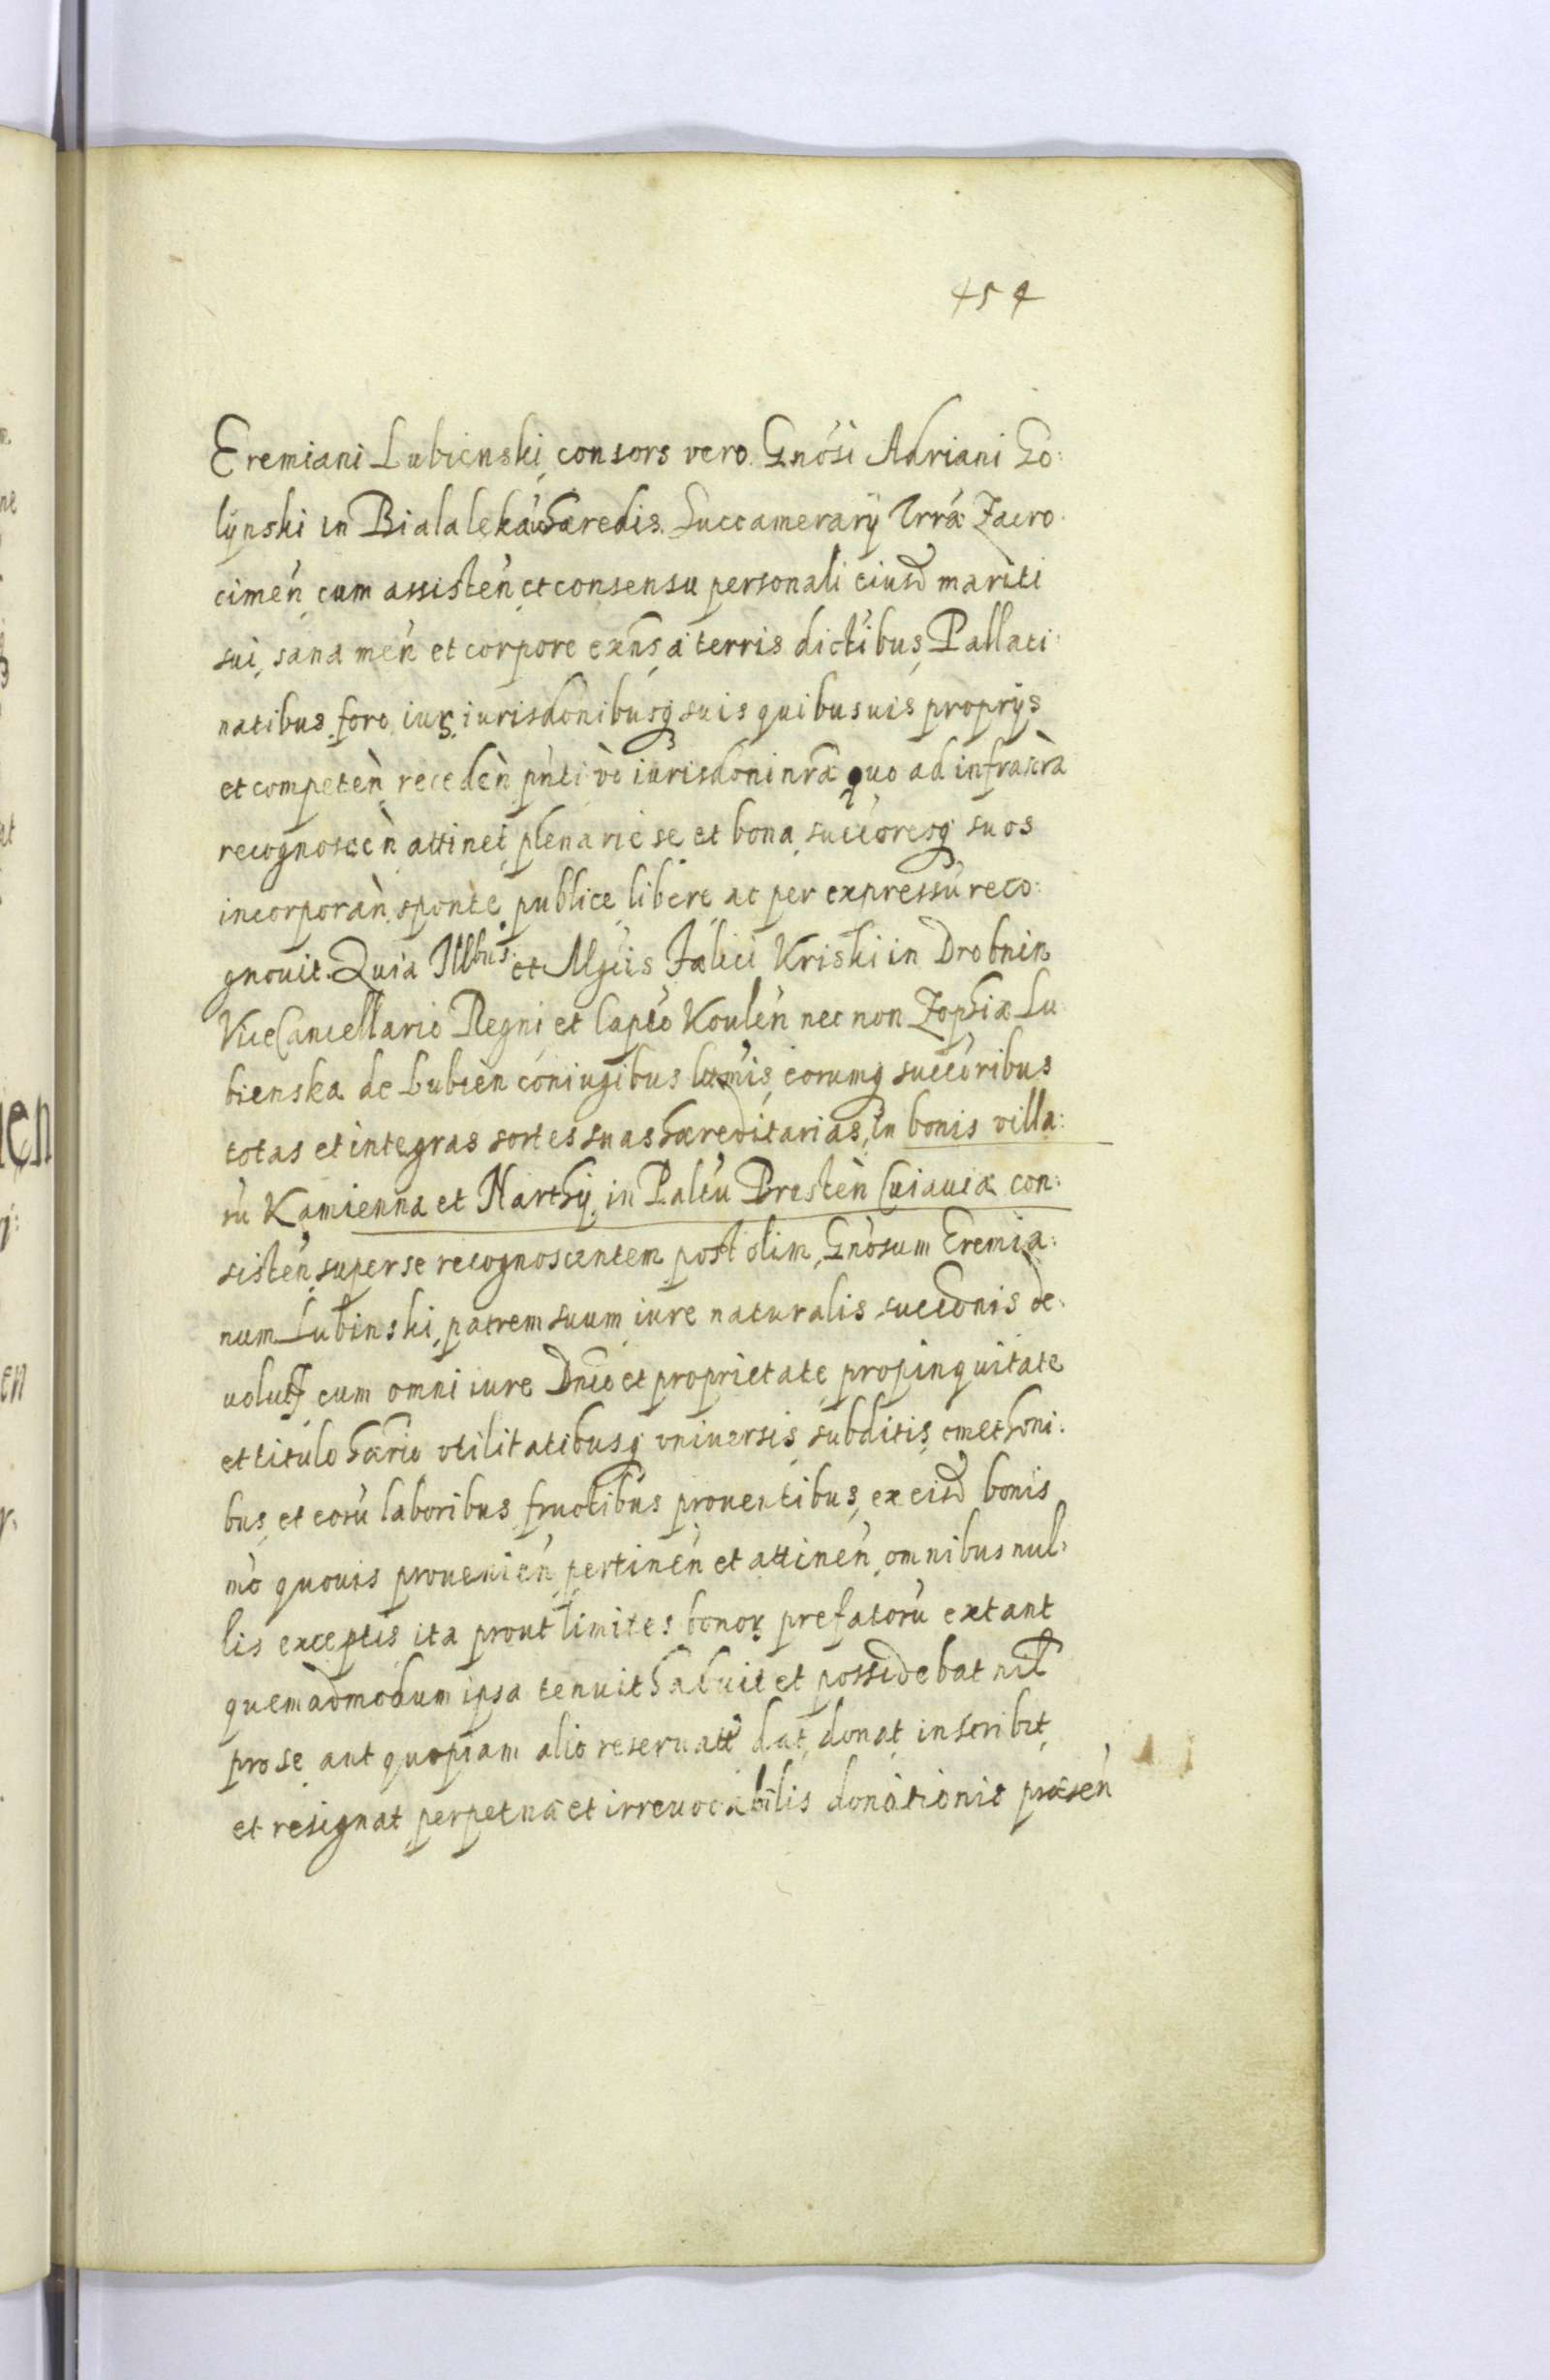 454
Eremiani Lubienski, consors vero Gnósi Adriani Go:
lÿnski in Bialaleká hæredis. Succamerarÿ Trrǽ Zacro
cimeń, cum assisteń, et consensu personali eiusd mariti
sui, sana meń et corpore exns, à terris dictibus, Pallati
natibus, foro, iur, iurisdonibusq suis quibusuis proprÿs
et competeǹ, recedeǹ pnti vò iurisdoni nrǽ quo ad infrascrà
recognosceǹ attinet, plenarie se et bona, succoresq suos
incorporàn, sponte, publice, libere ac per expressu reco:
gnouit. Quia Illbus et Mgcis Fælici Kriski in Drobnin
ViceCancellario Regni et Captó Kouleń nec non Zophiæ Lu
bienska de Lubien coniugibus ltmis, eorumq succoribus
totas et integras sortes suas hæreditarias, in bonis villa:
rù Kamienna et Narthÿ, in Paltu Bresteǹ Cuiauiæ con:
sisteń, super se recognoscentem post olim, Gnosum Eremia:
num Lubinski, patrem suum iure naturalis succonis de:
uolut cum omni iure Dnio et proprietate, propinquitate
et titulo hærio vtilitatibusq vniuersis, subditis, cmethoni:
bus, et eorù laboribus, fructibus prouentibus, ex eisd bonis
mò quouis proueniéń, pertineń et attineń, omnibus nul:
lis exceptis, ita prout limites bonor prefatorù extant
quemadmodum ipsa tenuit habuit et possidebat nil
pro se, aut quopiam alio reseruatt dat, donat, inscribit,
et resignat, perpetuæ et irreuocabilis donationis præseń